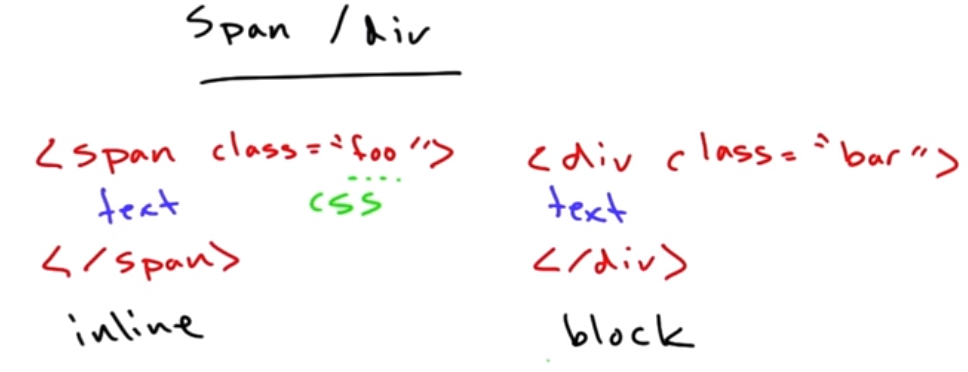 Span /div
<span class="foo">
text css
</span>
inline
<div class="bar">
text
</div>
block